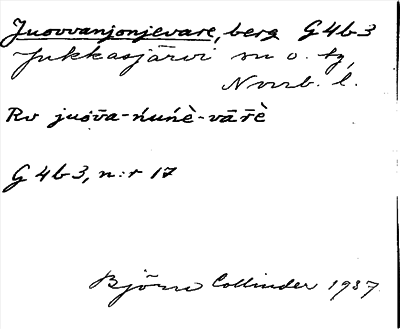 Juovvanjonjevare, berg G4b3
Jukkasjärvi sn o. tg,
Norrb. l.
Rv juōva-ńuńè-vārè
G 4b3, n:r 17
Björn Collinder 1937.